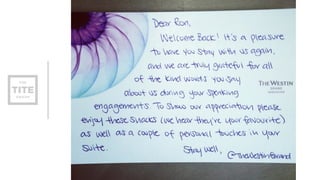 Dear Ron,
Welcome Back! It's a pleasure
to have you stay with us again,
and we are truly grateful for all
of the kind words you say
about us during your speaking
engagements. To show our appreciation please
enjoy these snacks (we hear they're your favourite)
as well as a couple of personal touches in your
suite.
Stay well,
@TheWestinGrand
THE WESTIN
GRAND
THE
TITE